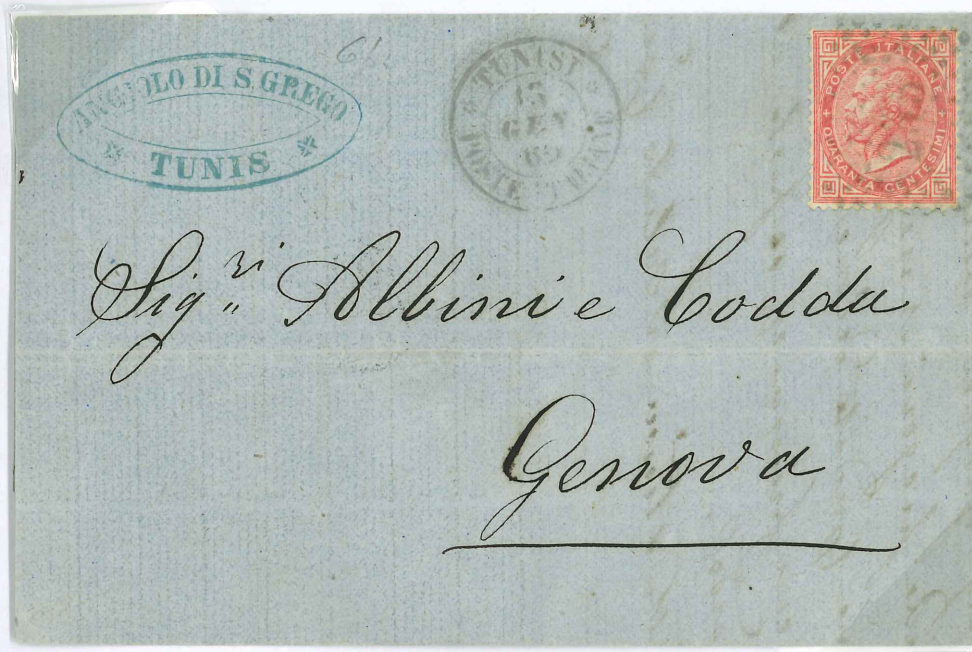 ANGIOLO DI S. GREGO
TUNIS
TUNISI
13
GEN
69
POSTE ITALIANE
POSTE ITALIANE
QUARANTA CENTESIMI
Sig.ri Albini e Codda
Genova